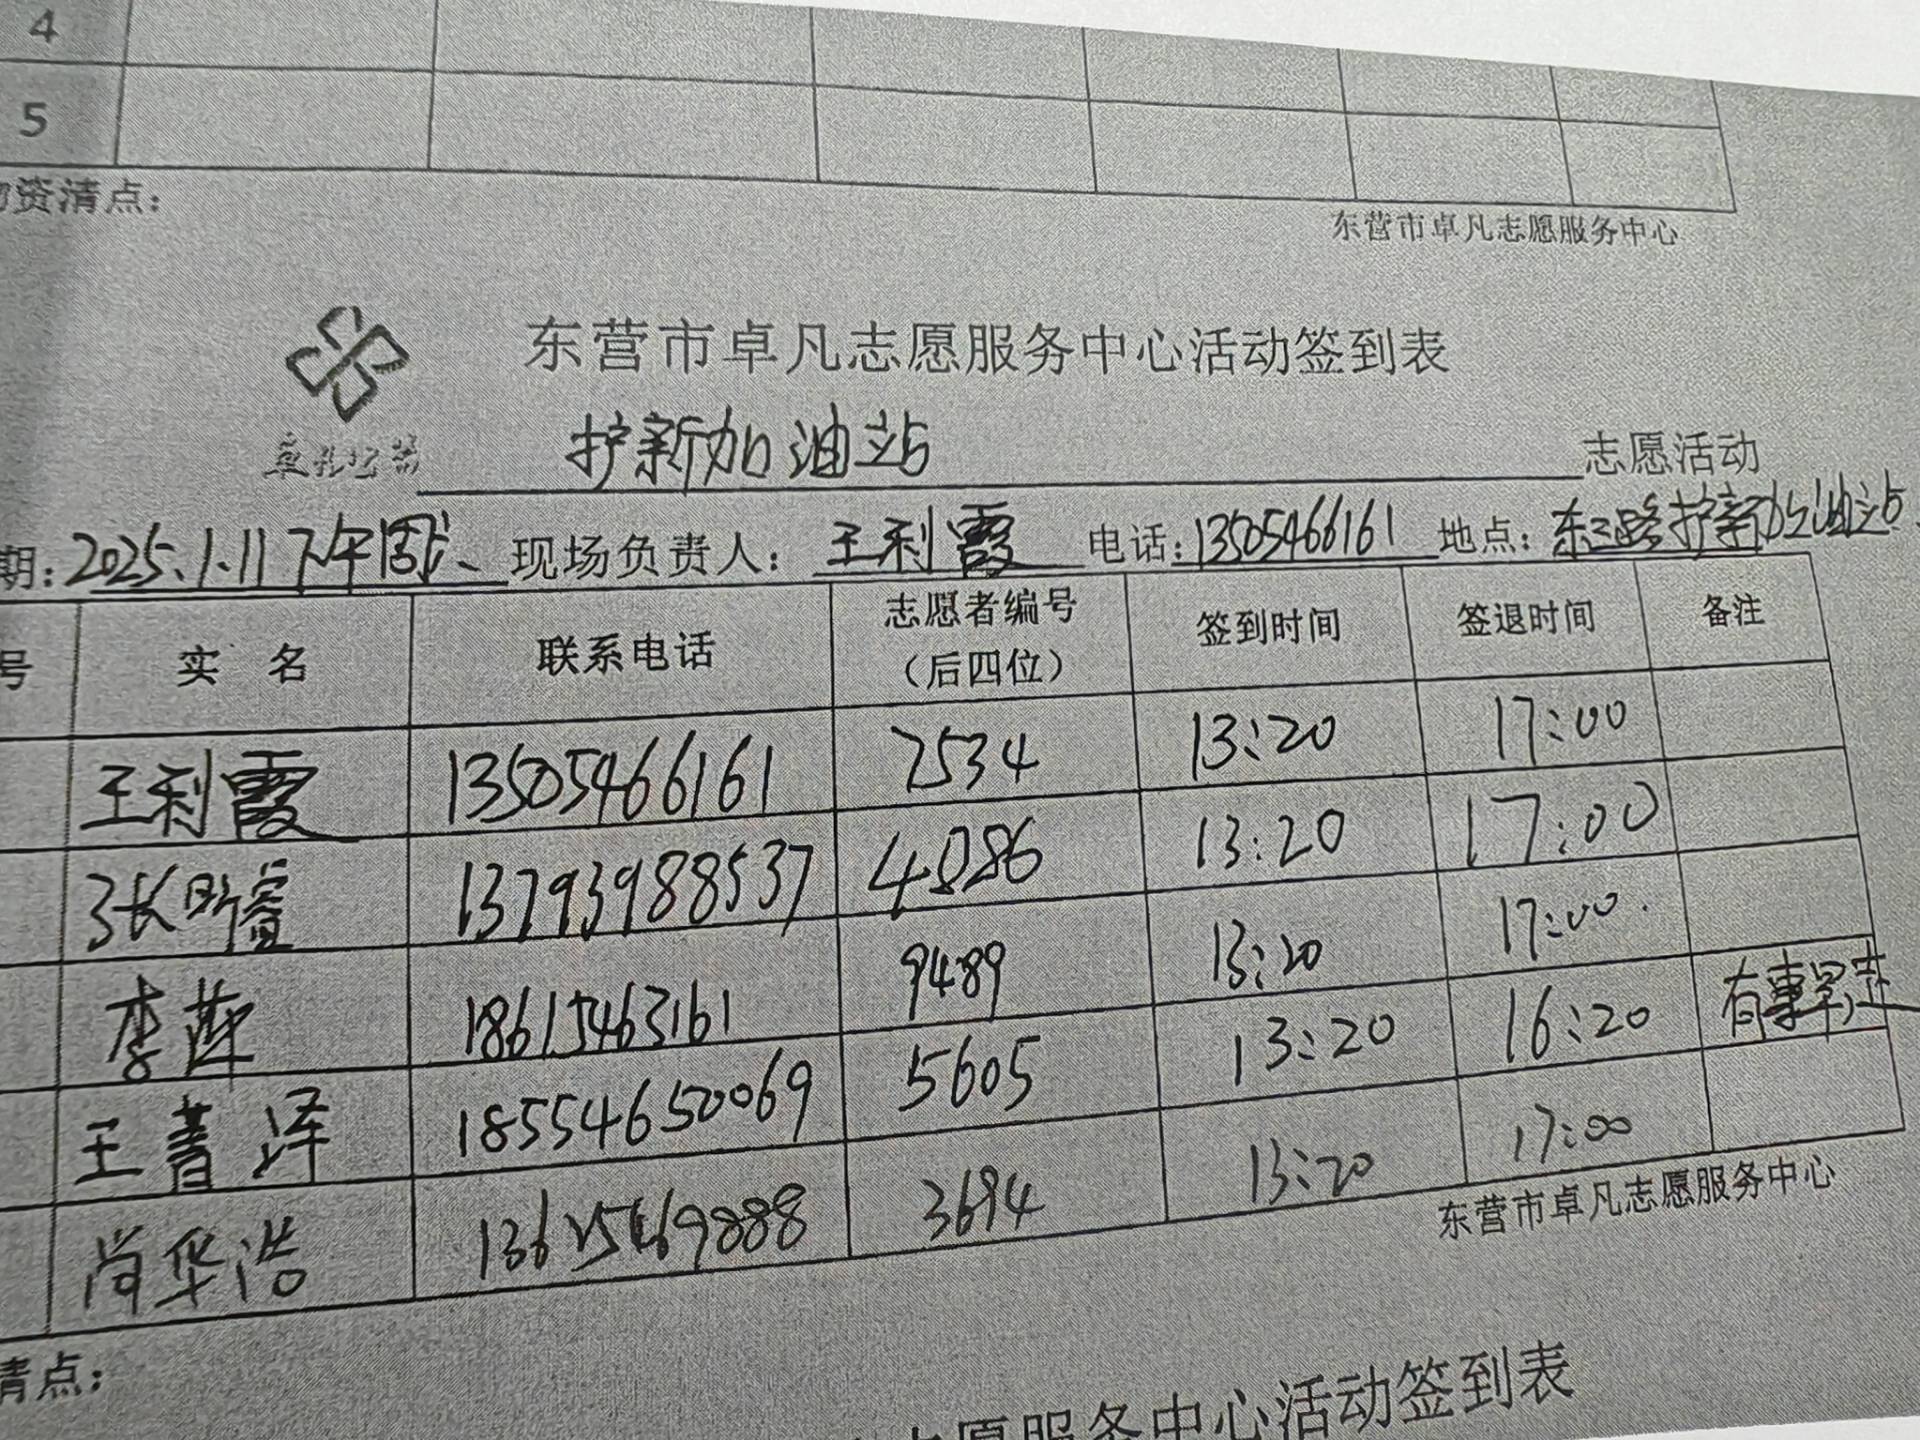 4
5
资清点：
东营市卓凡志愿服务中心
东营市卓凡志愿服务中心活动签到表
护新加油站 志愿活动
期：2025.1.11下午周六 现场负责人：王利霞 电话：13505466161 地点：东三路护新加油站
号 实 名 联系电话 志愿者编号（后四位） 签到时间 签退时间 备注
王利霞 13505466161 2534 13:20 17:00
张昕睿 13793988537 4886 13:20 17:00
李莲 18615463161 9489 13:20 17:00
王菁泽 18554650069 5605 13:20 16:20 有事早走
尚华浩 13615469888 3694 13:20 17:00
东营市卓凡志愿服务中心
清点：
志愿服务中心活动签到表